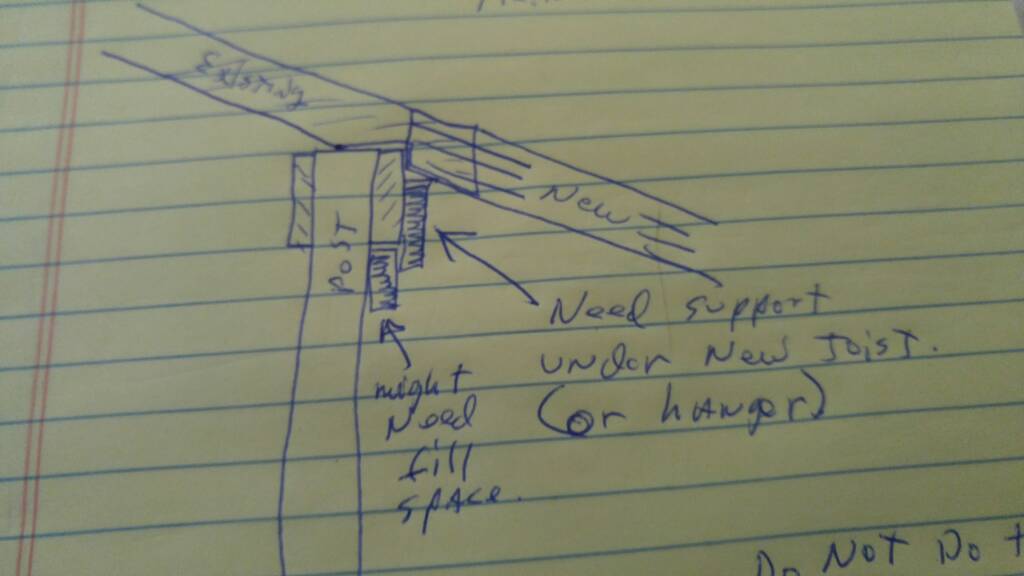 Existing
New
POST
Need support
under New Joist.
(or hanger)
might
Need
fill
space.
Do Not Do